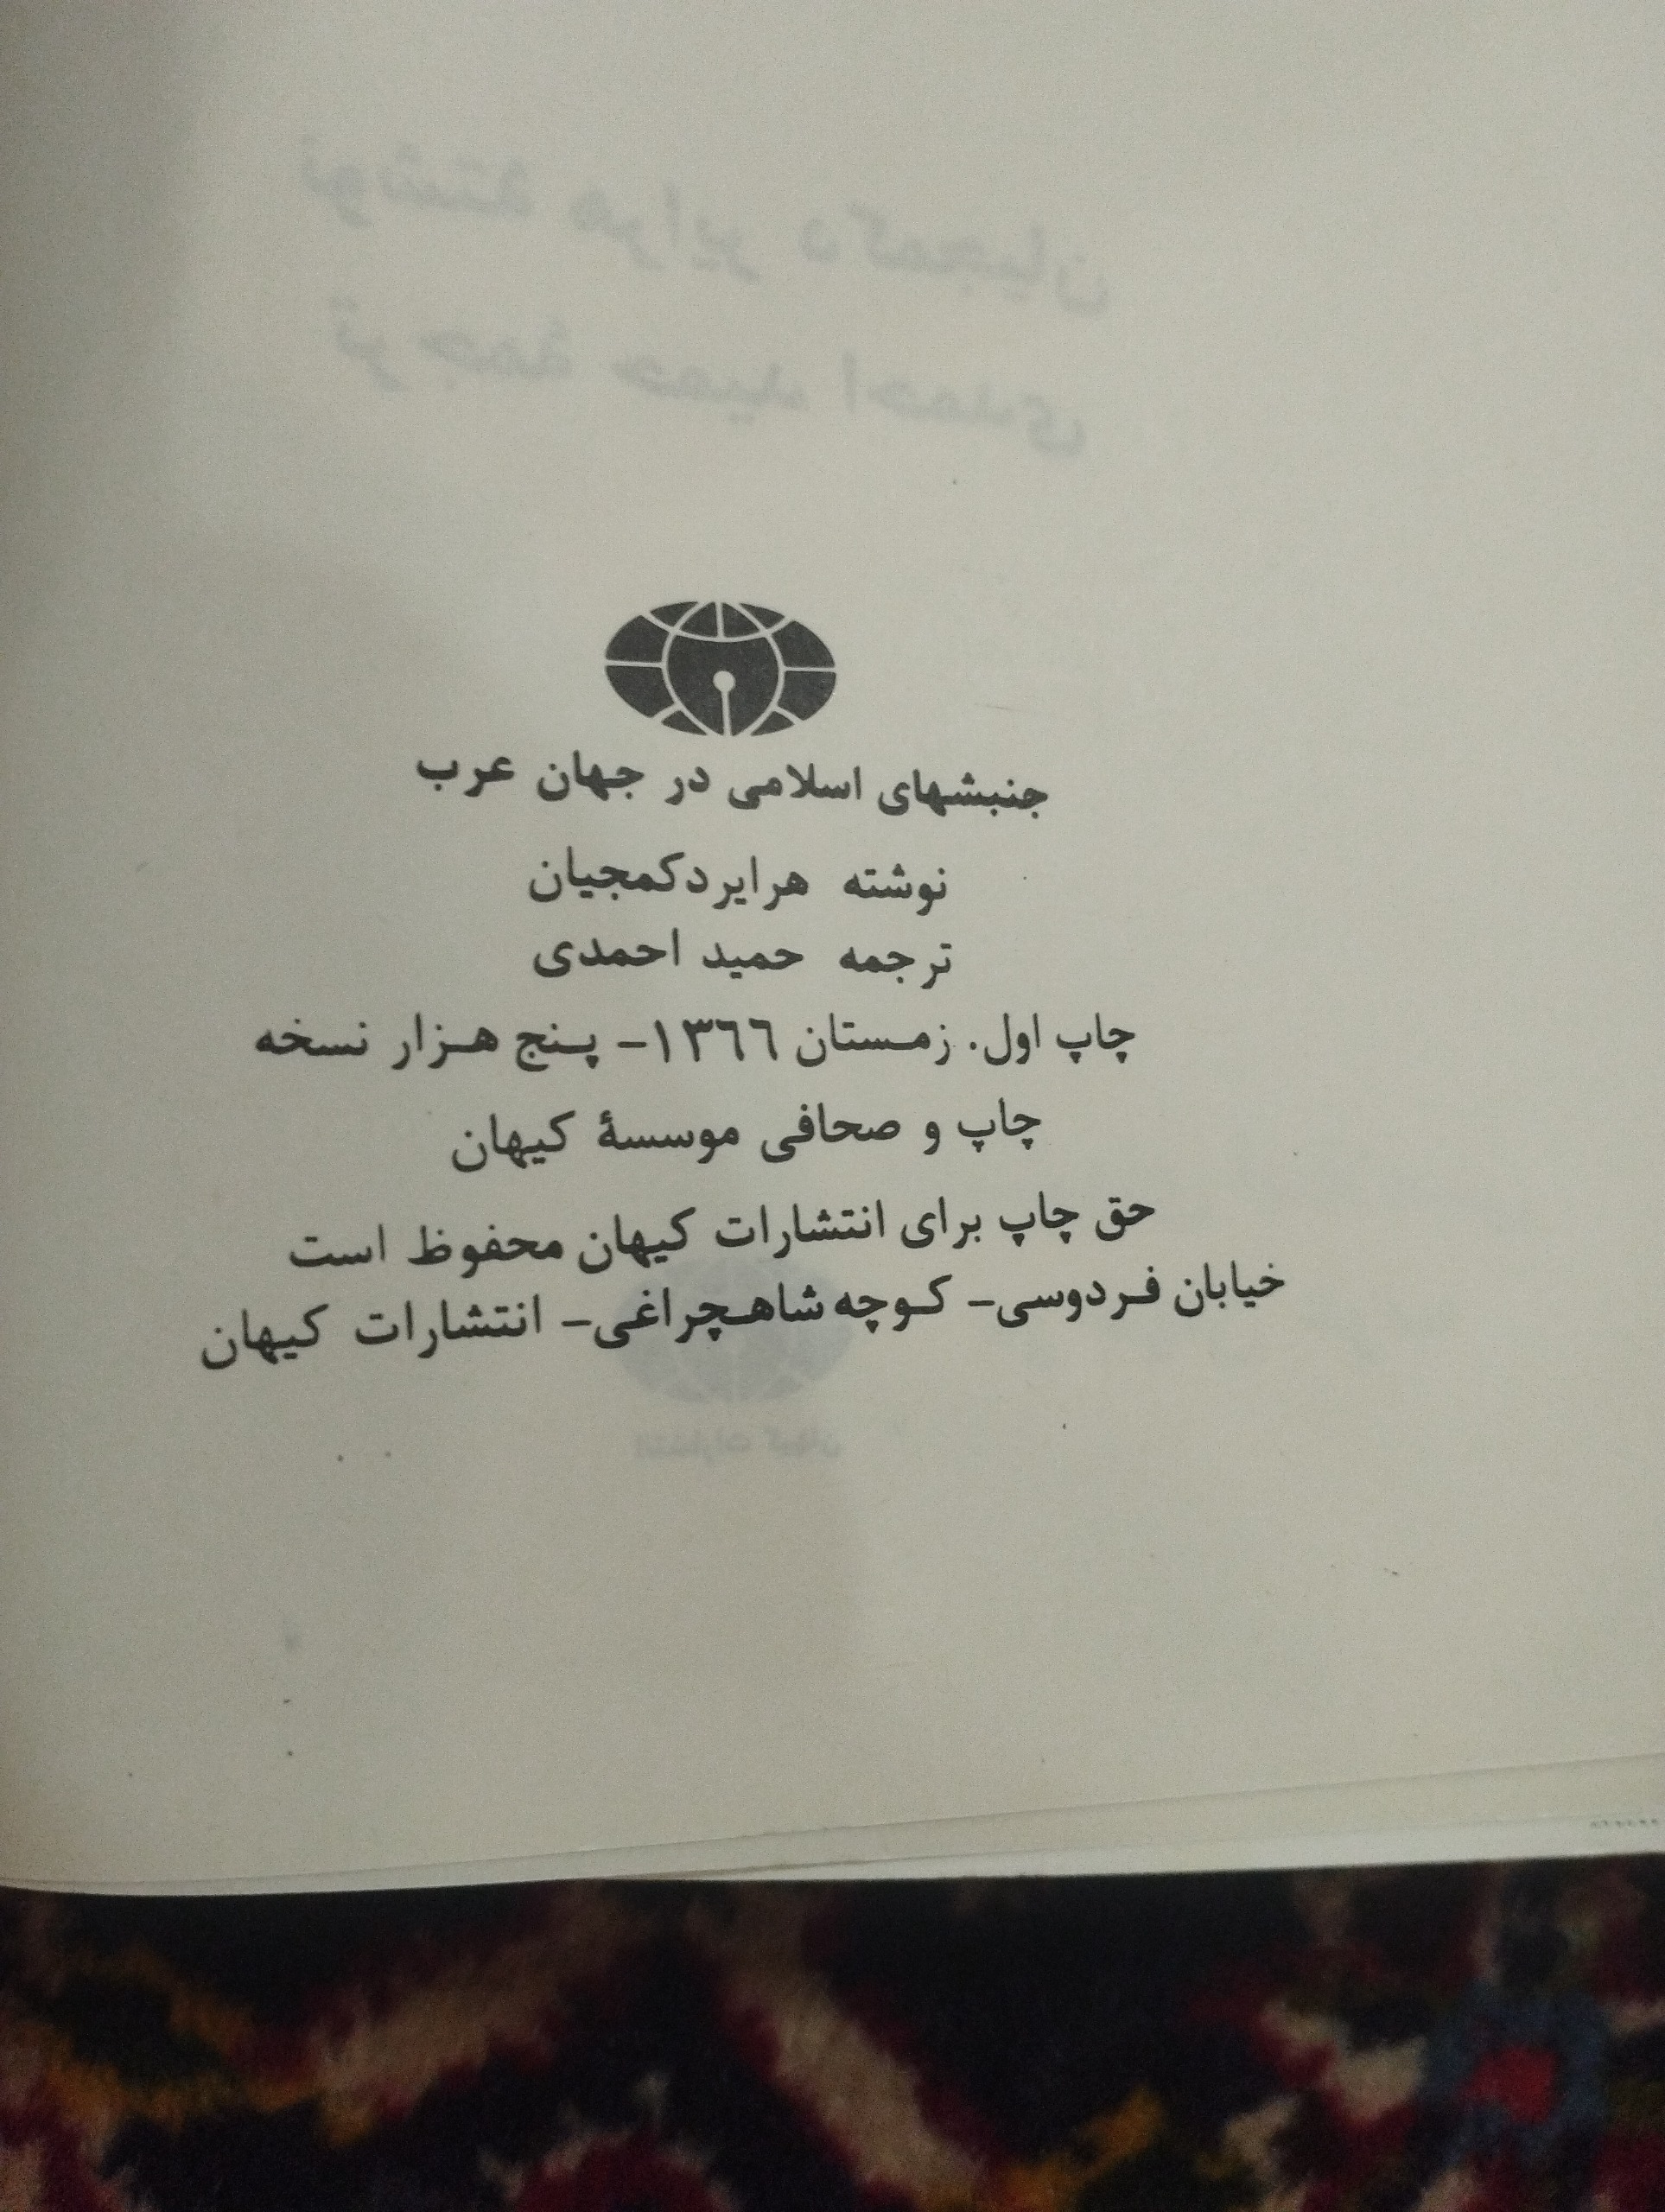 جنبشهای اسلامی در جهان عرب
نوشته هرایردکمجیان
ترجمه حمید احمدی
چاپ اول. زمستان ۱۳٦٦- پنج هزار نسخه
چاپ و صحافی موسسهٔ کیهان
حق چاپ برای انتشارات کیهان محفوظ است
خیابان فردوسی- کوچه شاهچراغی- انتشارات کیهان